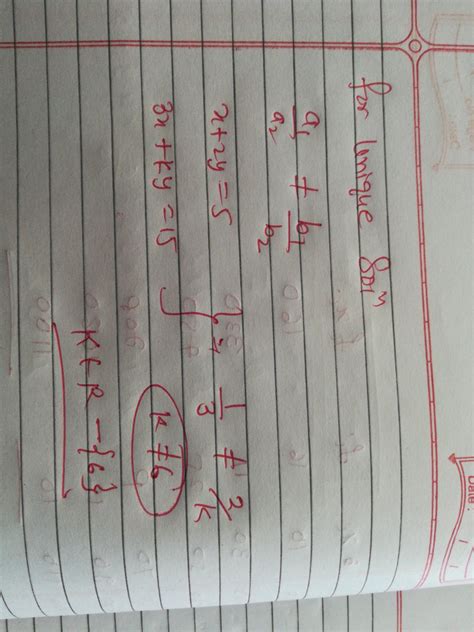 for Unique Solⁿ
a₁/a₂ ≠ b₁/b₂
x+2y=5
3x+ky=15 } ⇒ 1/3 ≠ 2/k
k≠6
K ∈ R - {6}
Date: